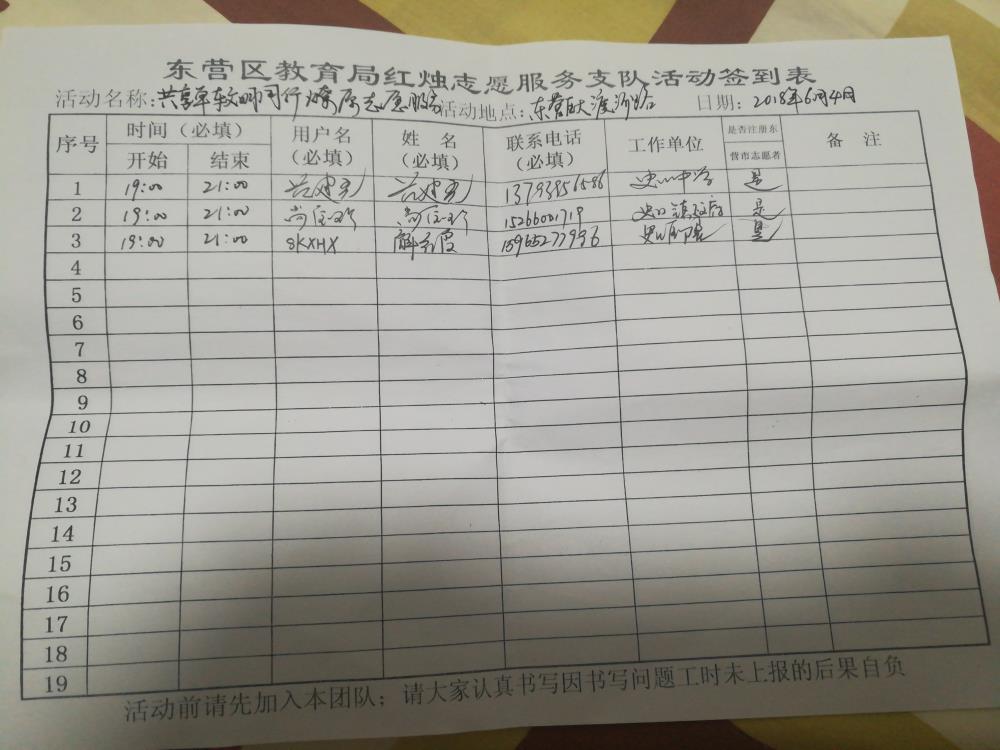 东营区教育局红烛志愿服务支队活动签到表
活动名称: 共享单车文明同行 燎原志愿服务 活动地点: 东营区 日期: 2018年6月4日
序号 时间（必填） 用户名（必填） 姓 名（必填） 联系电话（必填） 工作单位 是否注册东营市志愿者 备 注
开始 结束
1 19:00 21:00 13793956586 史口中学 是
2 19:00 21:00 15266001719 史口镇政府 是
3 19:00 21:00 SKXHX 解 霞 15965277996 史口 是
4
5
6
7
8
9
10
11
12
13
14
15
16
17
18
19
活动前请先加入本团队；请大家认真书写因书写问题工时未上报的后果自负